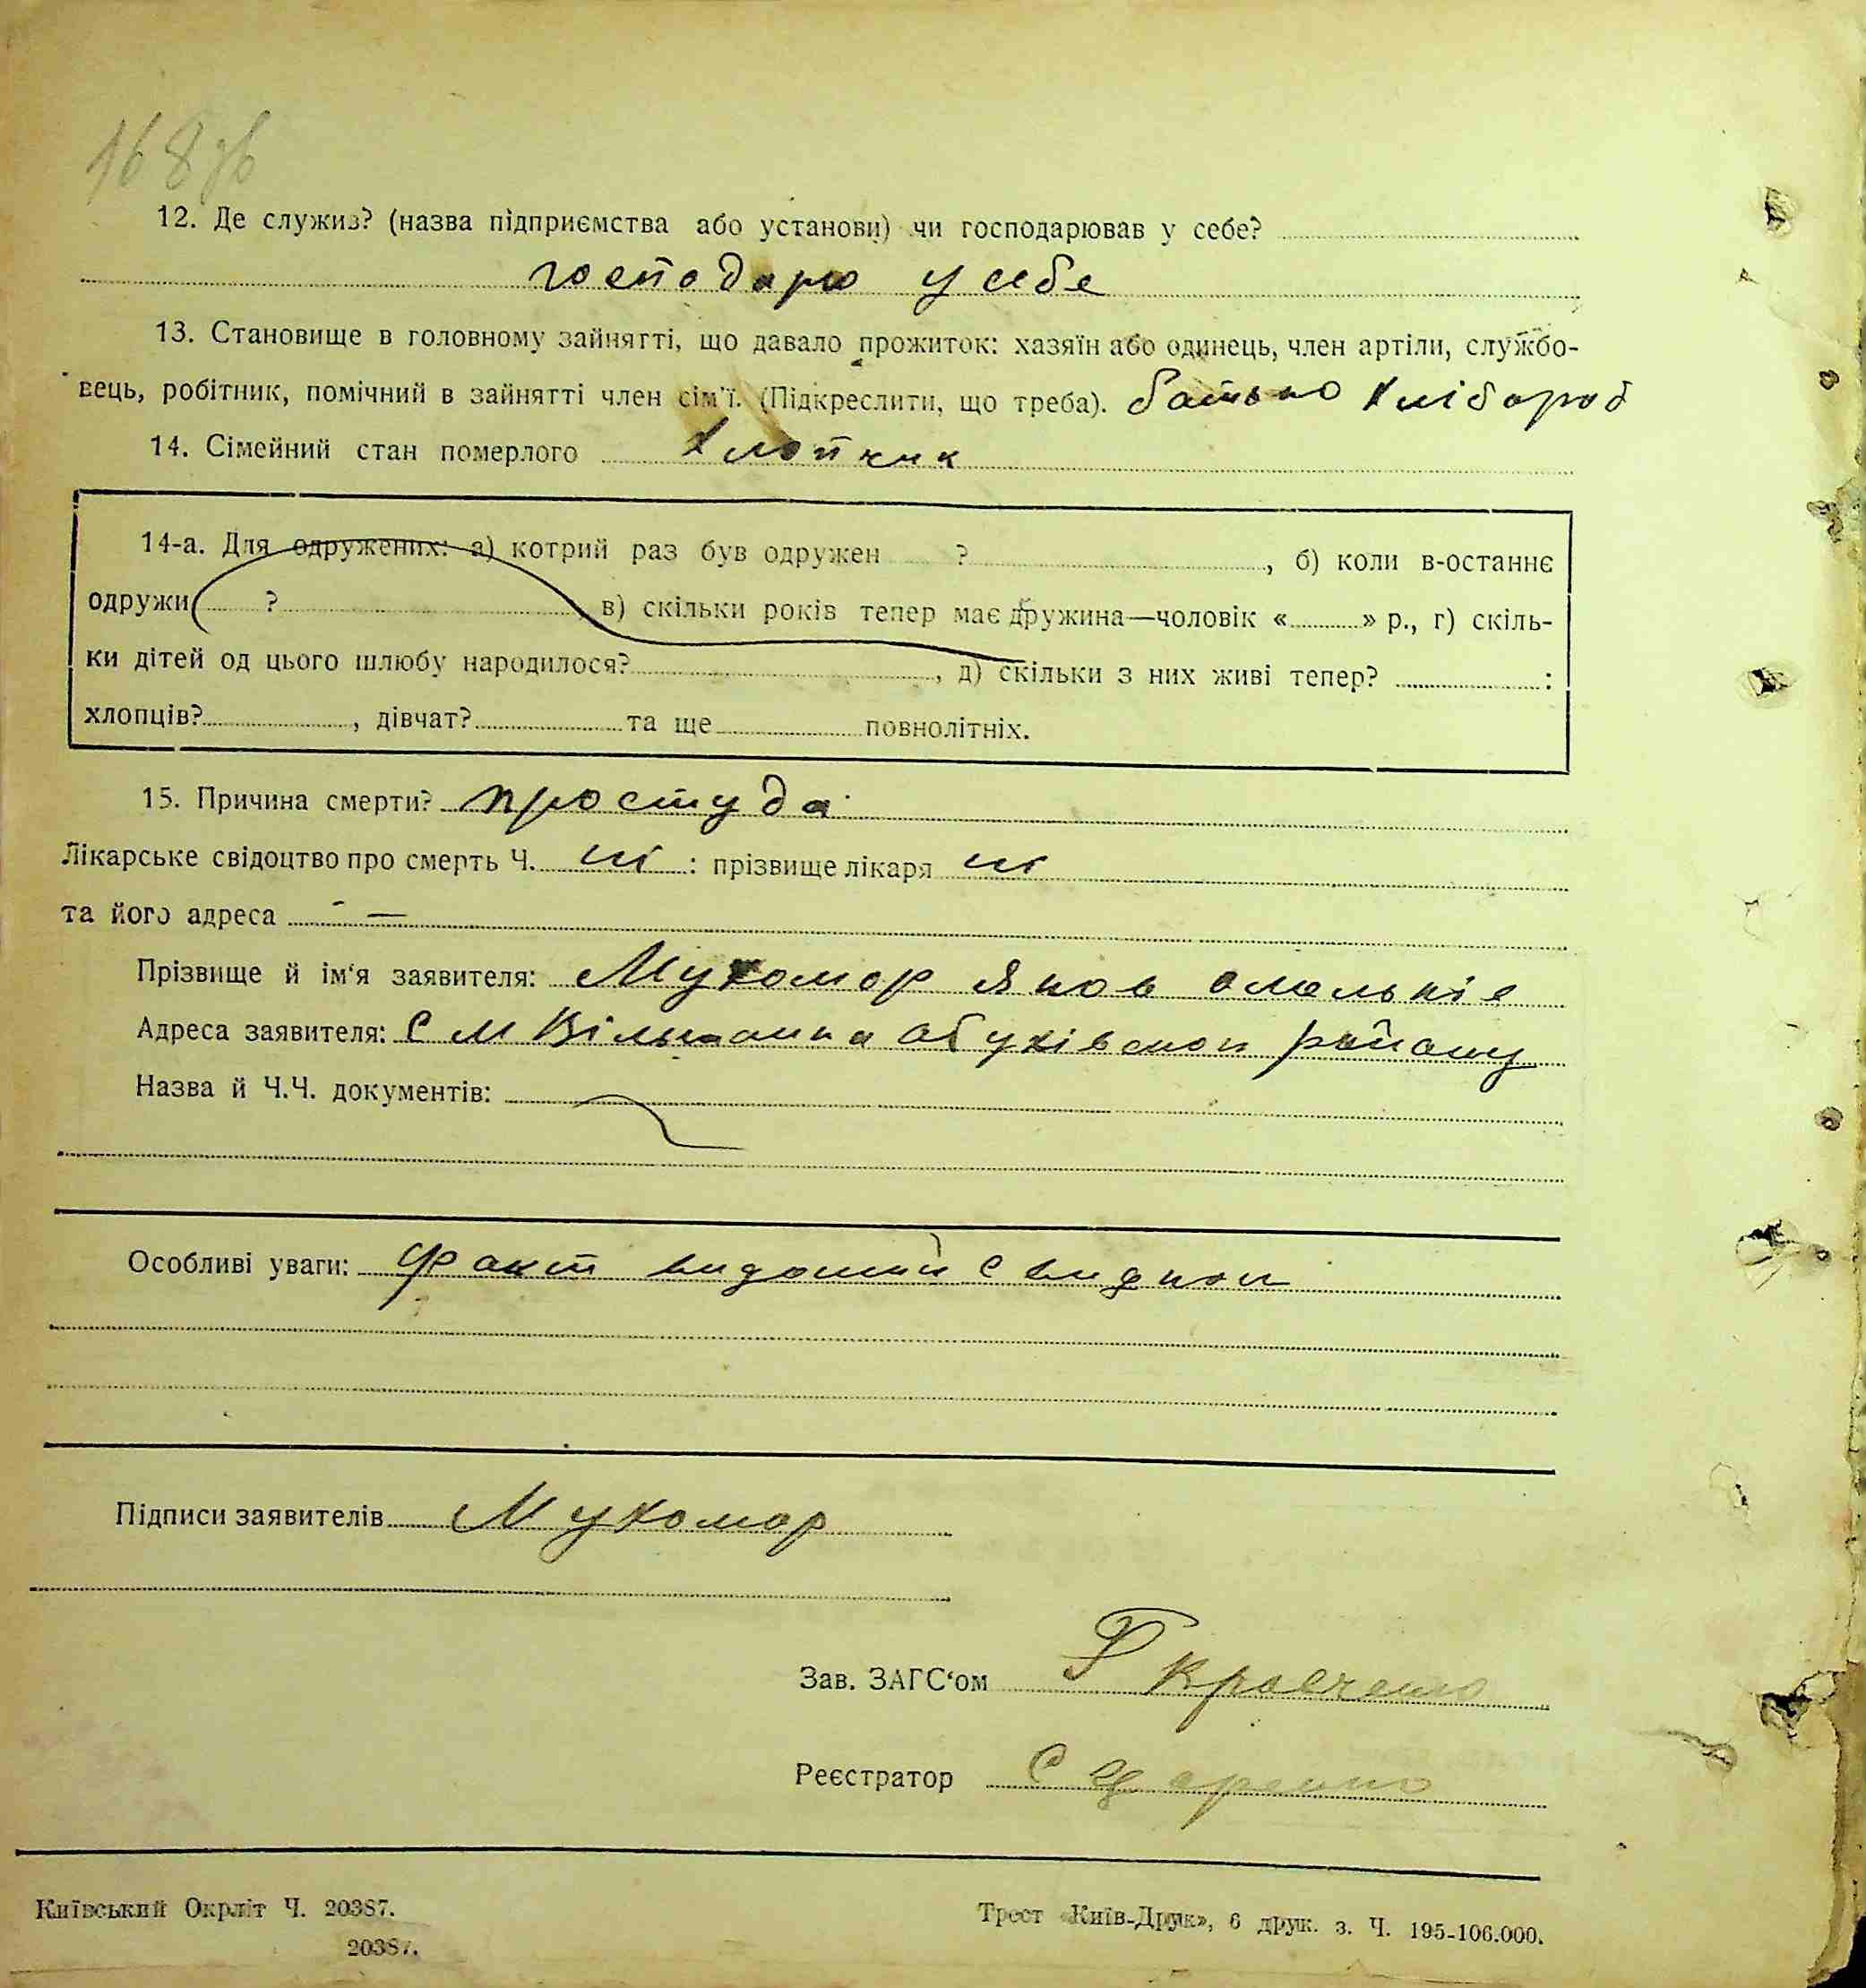 168 зв
12. Де служив? (назва підприємства або установи) чи господарював у себе?
господарю у себе
13. Становище в головному зайнятті, що давало прожиток: хазяїн або одинець, член артіли, службо-
вець, робітник, помічний в зайнятті член сім'ї. (Підкреслити, що треба). батько хлібороб
14. Сімейний стан померлого хлопчик
14-а. Для одружених: а) котрий раз був одружен ?, б) коли в-останнє
одружи ? в) скільки років тепер має дружина—чоловік « » р., г) скіль-
ки дітей од цього шлюбу народилося? , д) скільки з них живі тепер? :
хлопців? , дівчат? та ще повнолітніх.
15. Причина смерти? простуда
Лікарське свідоцтво про смерть Ч. ні : прізвище лікаря ні
та його адреса —
Прізвище й ім'я заявителя: Мухомор Яков
Адреса заявителя: С М Вільшанка Обухівськой району
Назва й Ч.Ч. документів:
Особливі уваги: Факт
Підписи заявителів Мухомор
Зав. ЗАГС'ом Кравченко
Реєстратор С
Київський Окрліт Ч. 20387.
20387.
Трест «Київ-Друк», 6 друк. з. Ч. 195-106.000.